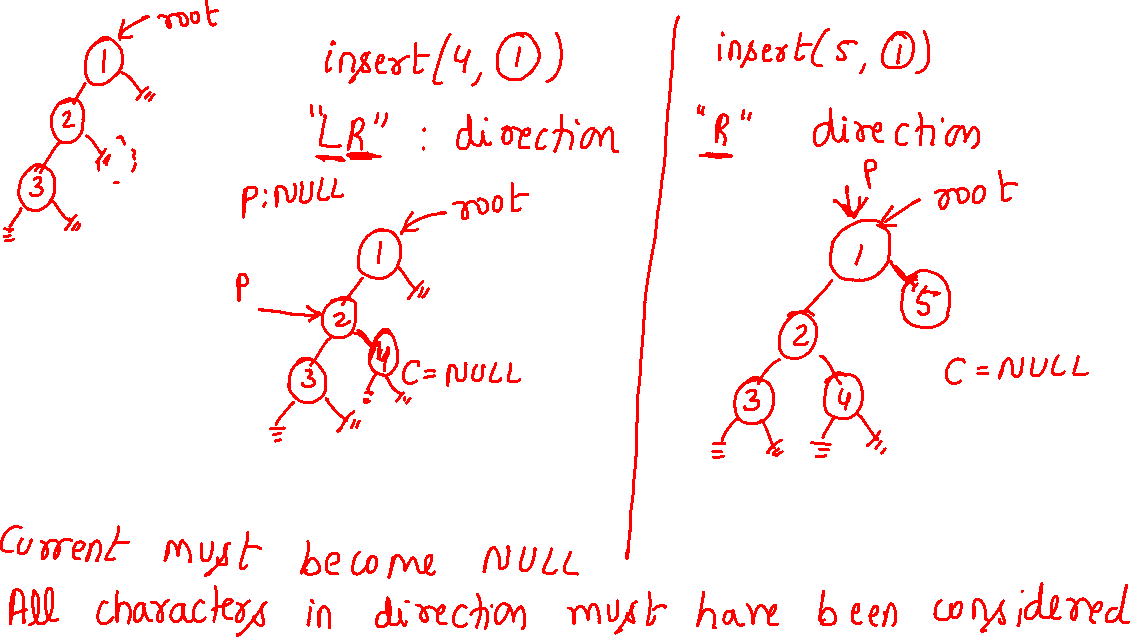 root
1
2
3
insert(4, 1)
"LR" : direction
P:NULL
root
1
P
2
3
4
C=NULL
insert(5, 1)
"R" direction
P
root
1
5
2
3
4
C=NULL
Current must become NULL
All characters in direction must have been considered